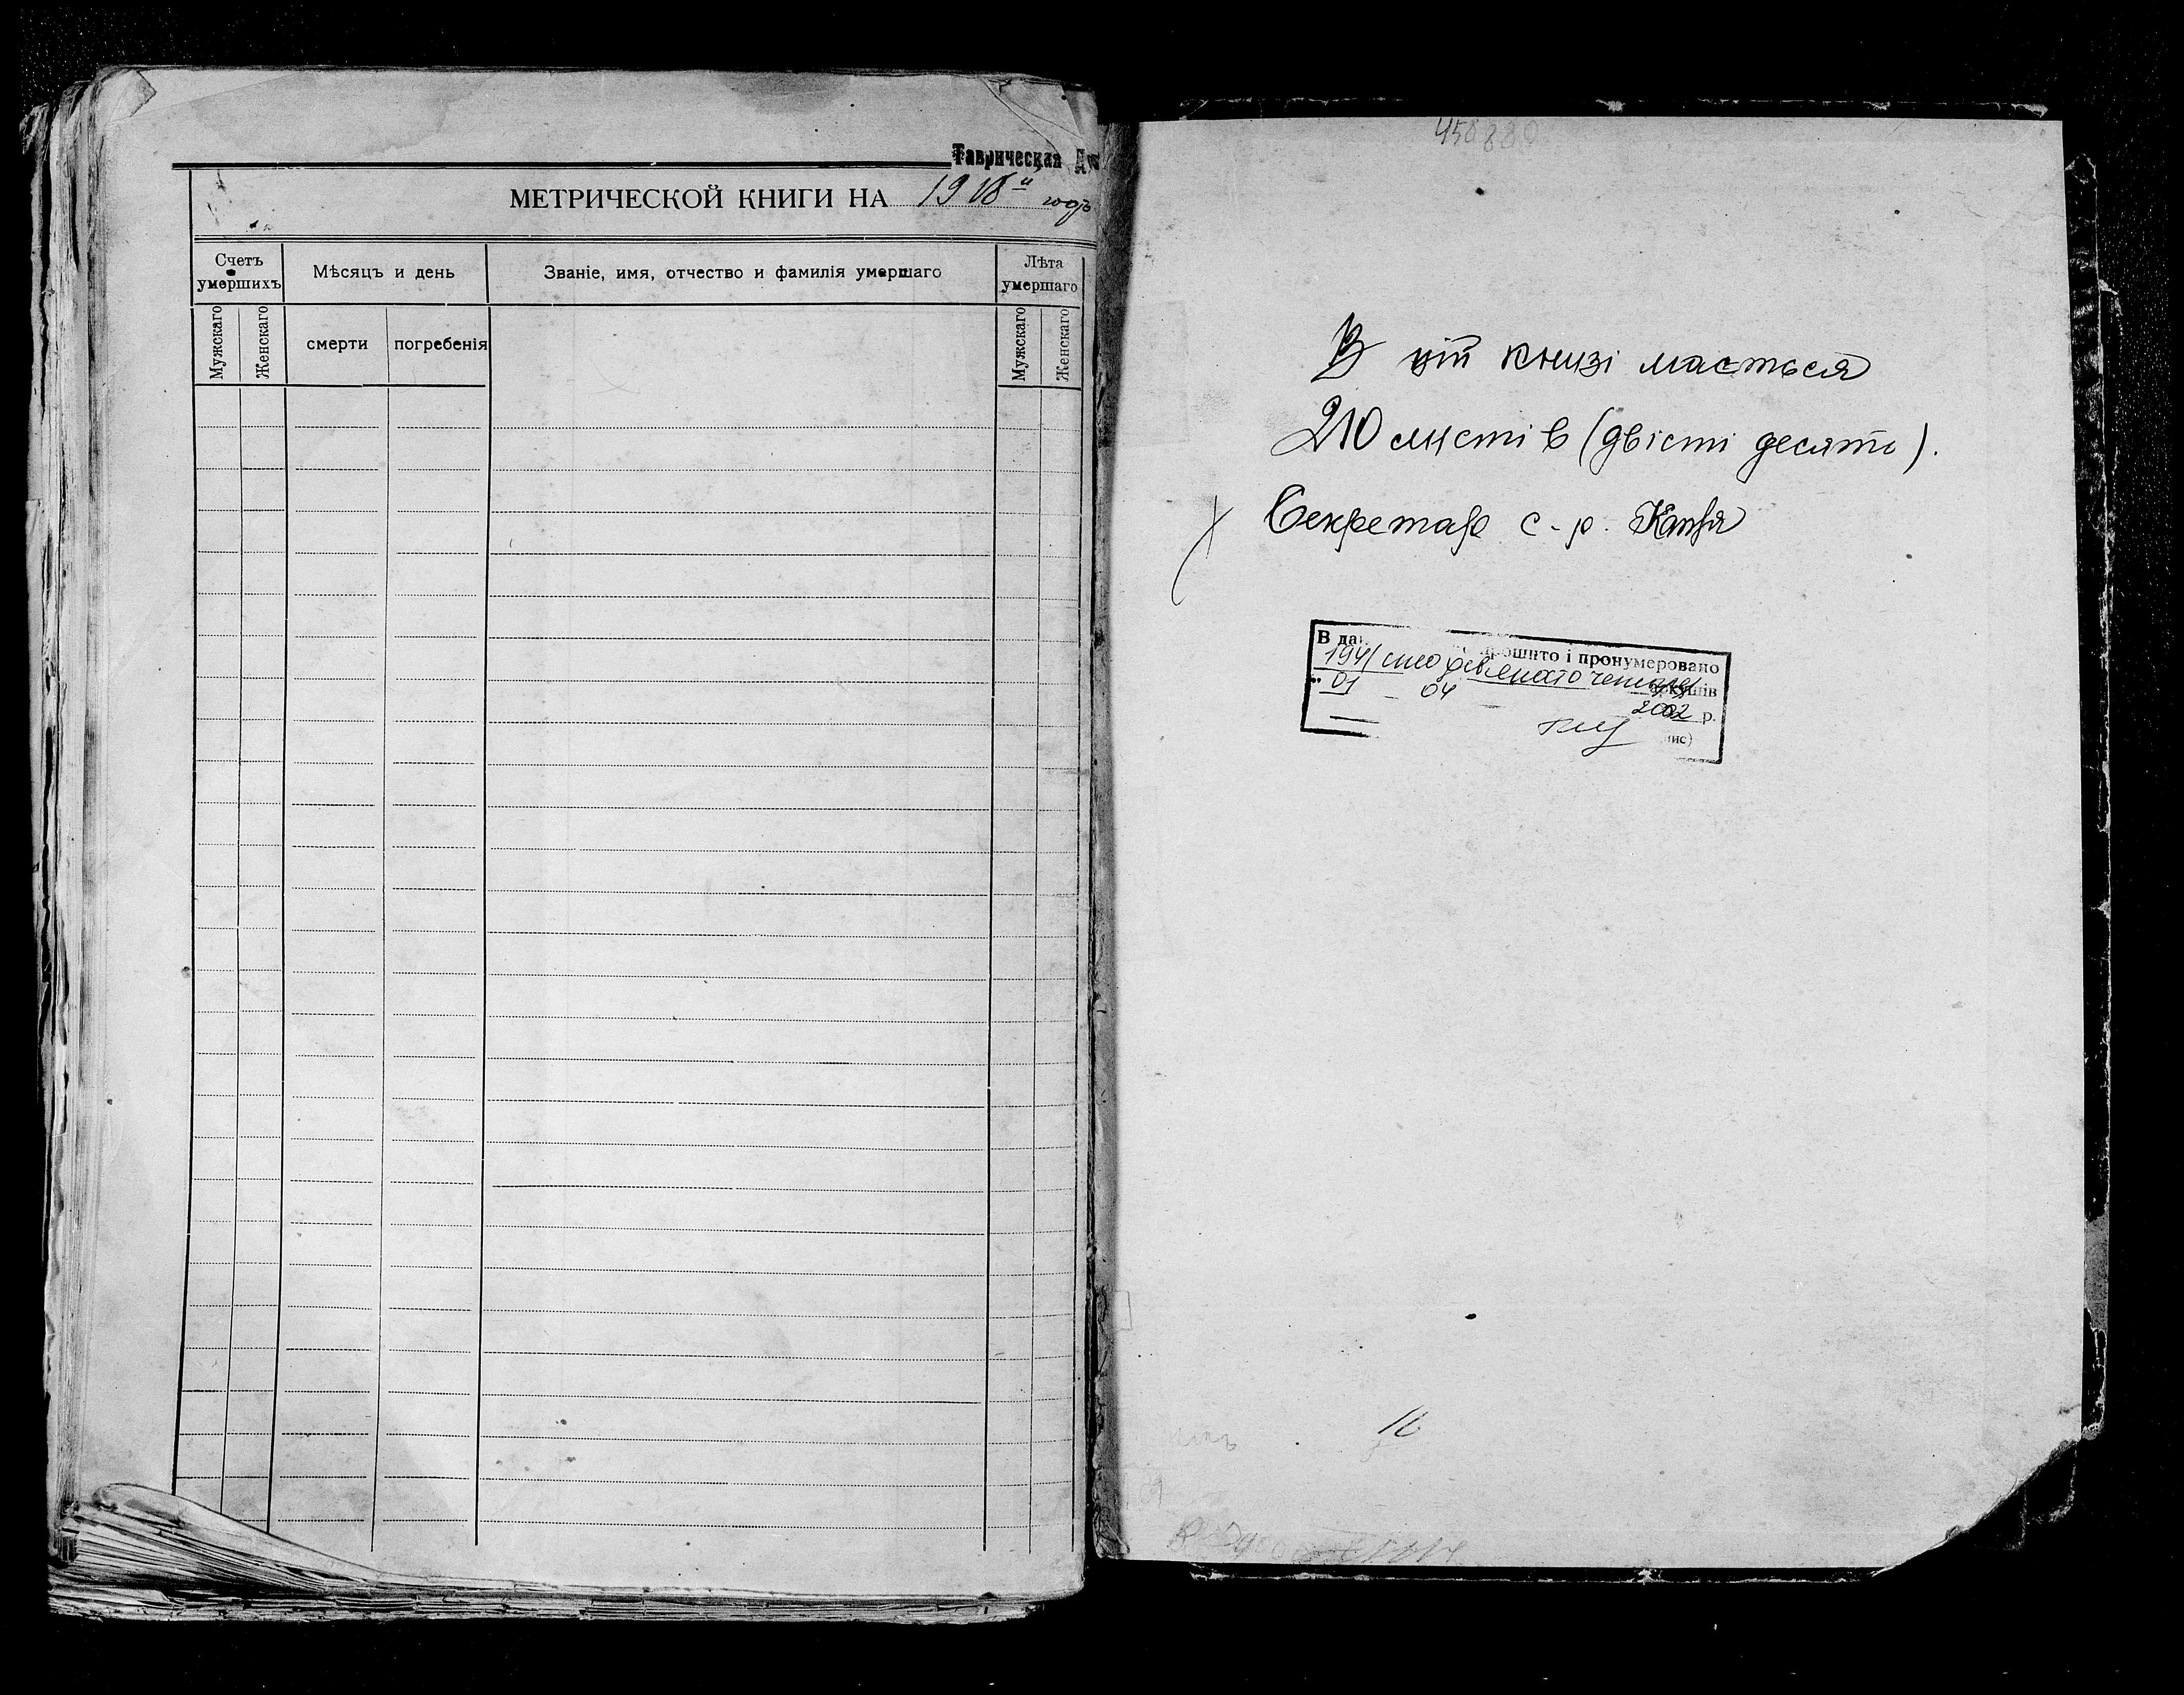 Таврическая
МЕТРИЧЕСКОЙ КНИГИ НА 1918й годъ
Счетъ умершихъ
Мѣсяцъ и день
Званіе, имя, отчество и фамилія умершаго
Лѣта умершаго
Мужскаго
Женскаго
смерти
погребенія
Мужскаго
Женскаго
В цій книзі мається
210 листів (двісті десять).
Секретар с-р.
В
прошито і пронумеровано
194/ сто девяносто чотири/ аркушів
01 04 2002 р.